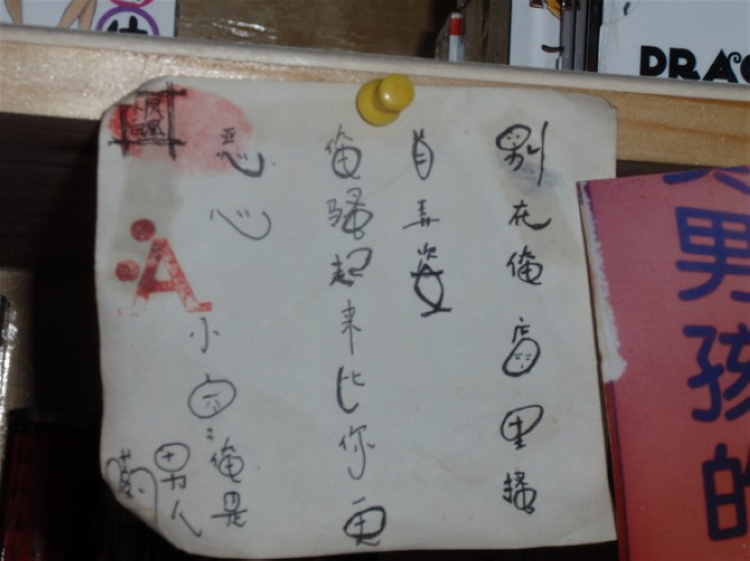 别在俺店里搔
首弄姿
俺骚起来比你更
恶心
小白:俺是
男人
凤凰
A
男孩的
DRAG